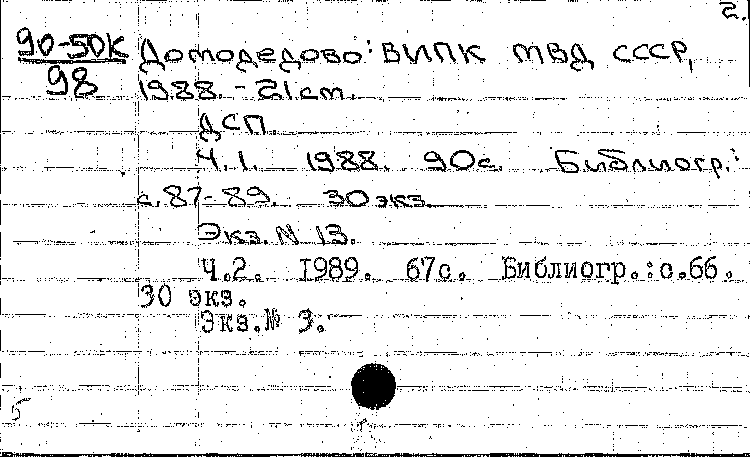 2.
90-50К Домодедово: ВИПК МВД СССР,
98 1988. - 21 cm.
ДСП.
Ч.1. 1988. 90с. Библиогр.:
с. 87-89. 30 экз.
Экз. N 13.
Ч.2. I989. 67с. Библиогр.:с.66.
30 экз.
Экз.№ 3.
5